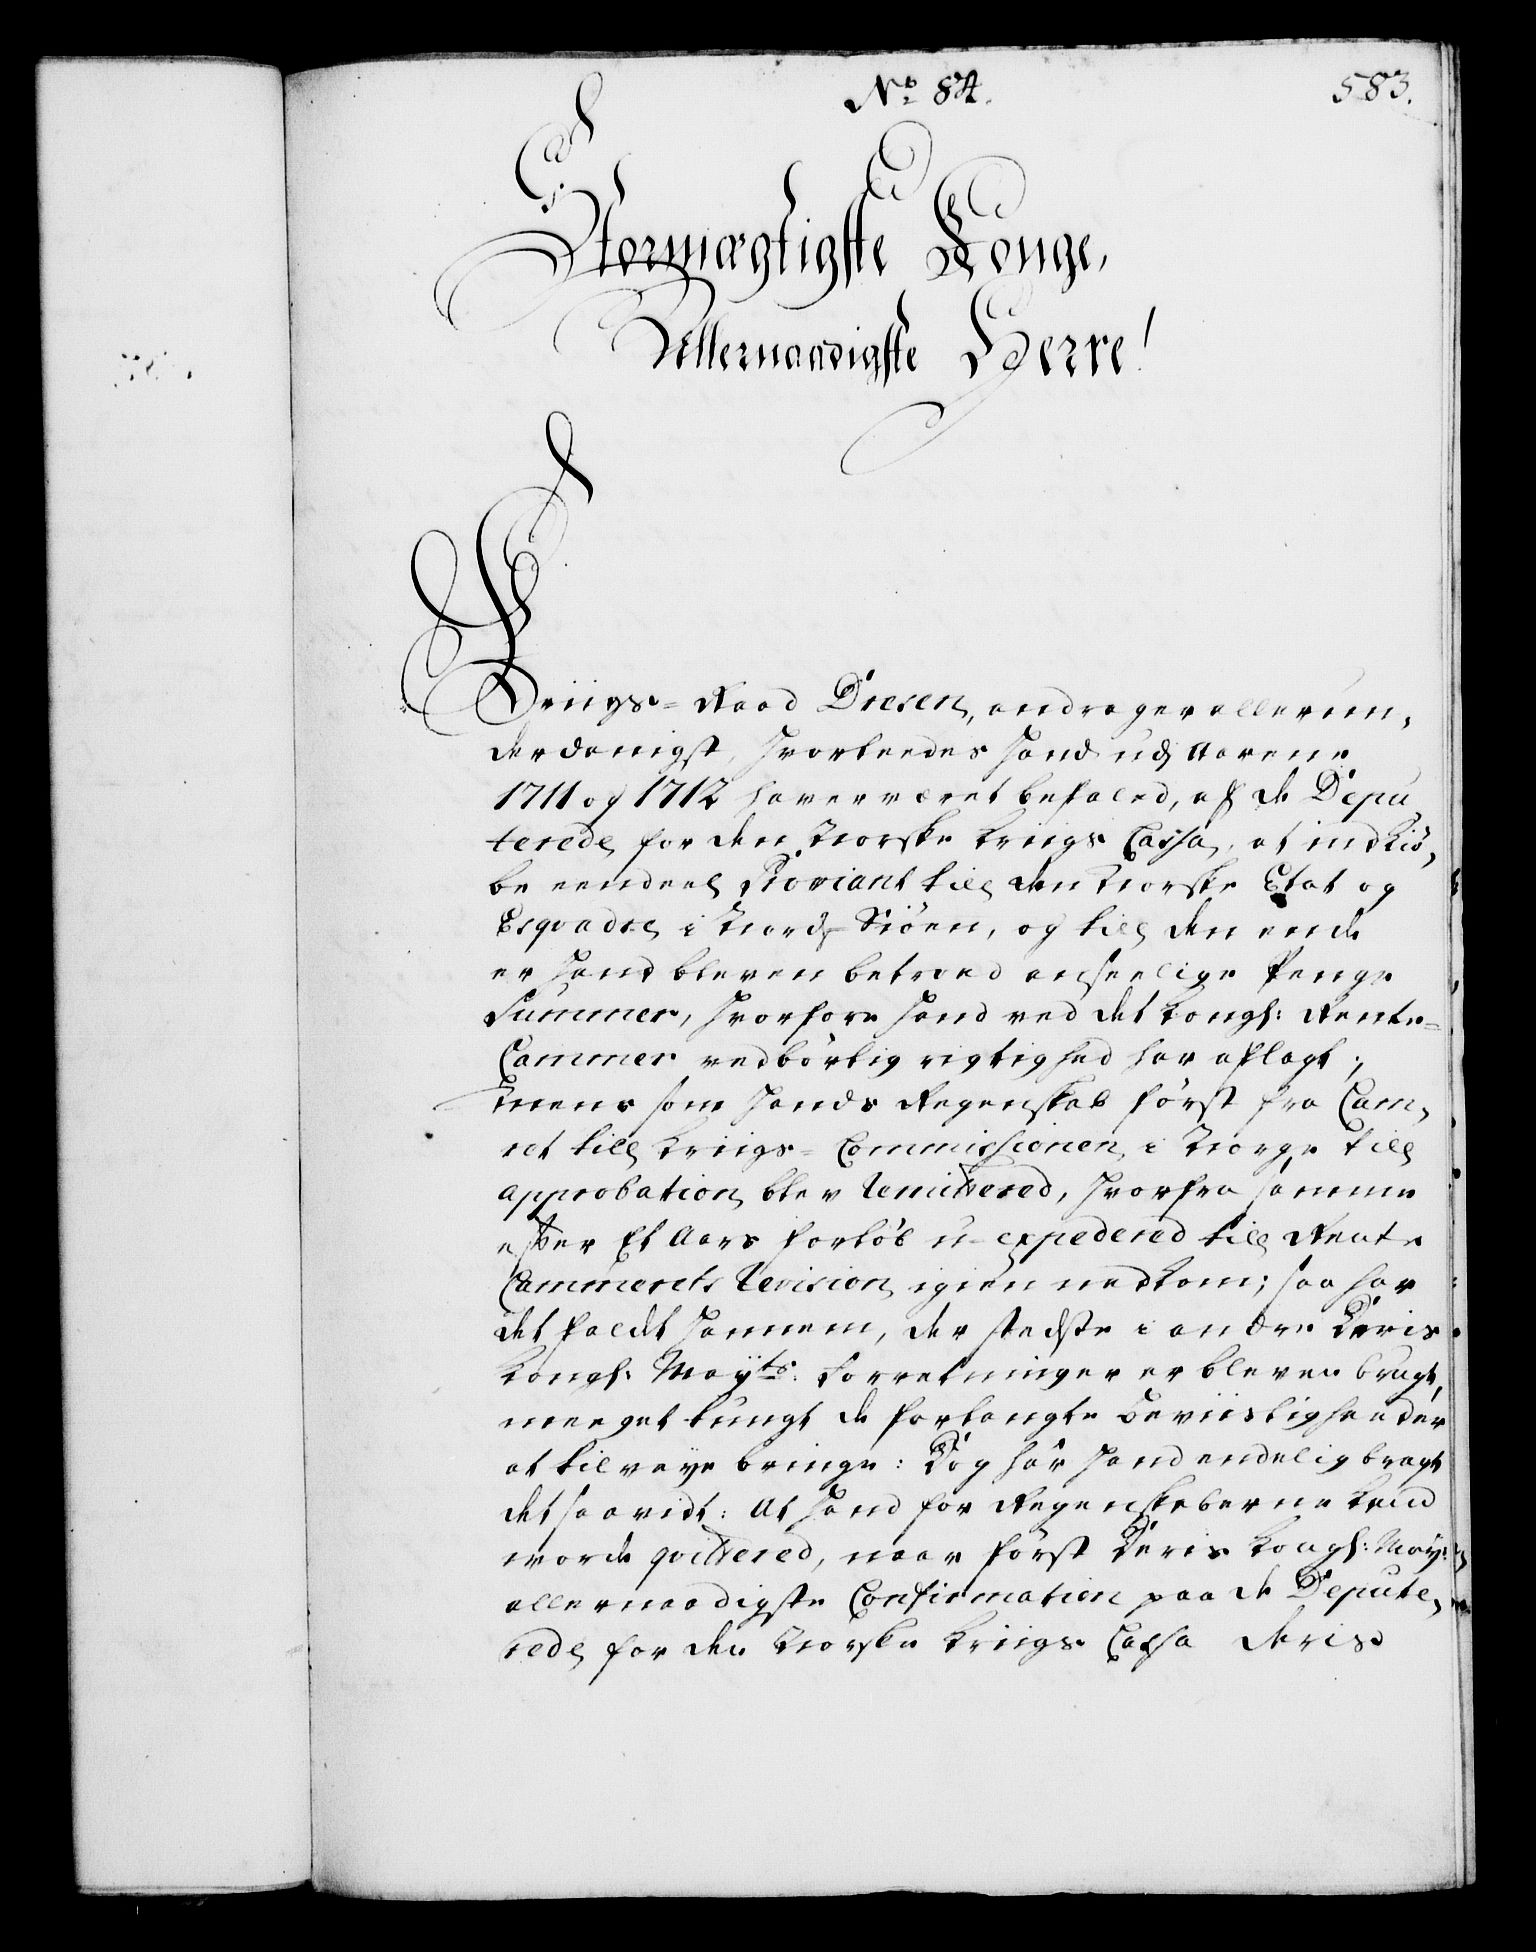 No 84.
583.
Stormægtigste Konge,
Allernaadigste Herre!
Kriigs-Raad Diesen, andrager allerun,
derdanigst, hvorleedes hand udj Aarene
1711 og 1712 haver været befaled, af de Depu,
terede for den Norske Kriigs Cassa, at indkiø,
be eendeel Proviant till den Norske Etat og
Esqvadre i Nord-Siöen, og till den ende
er hand bleven betroed anseelige Penge
Summer, hvorfore hand ved det Kongl: Rente-
Cammer vedbörlig rigtighed har aflagt;
Mens som hands Regenskab först fra Cam,
ret till Kriigs-Commissionen i Norge till
approbation blev Remitered, hvorfra samme
efter Et Aars forlöb u-expedered till Rente
Cammerets Revision igien nedkom; saa har
det faldt hannem, der stedste i andre Deris
Kongl: Mayts: Forretninger er bleven brugt,
meeget tungt de forlangte Beviisligheeder
at tilveye bringe: Dog har hand endelig bragt
det saavidt: At hand for Regenskaberne kand
worde qvitered, naar först Deris Kongl: May:ts
allernaadigste Confirmation paa de Depute,
rede for den Norske Kriigs Cassa Deris